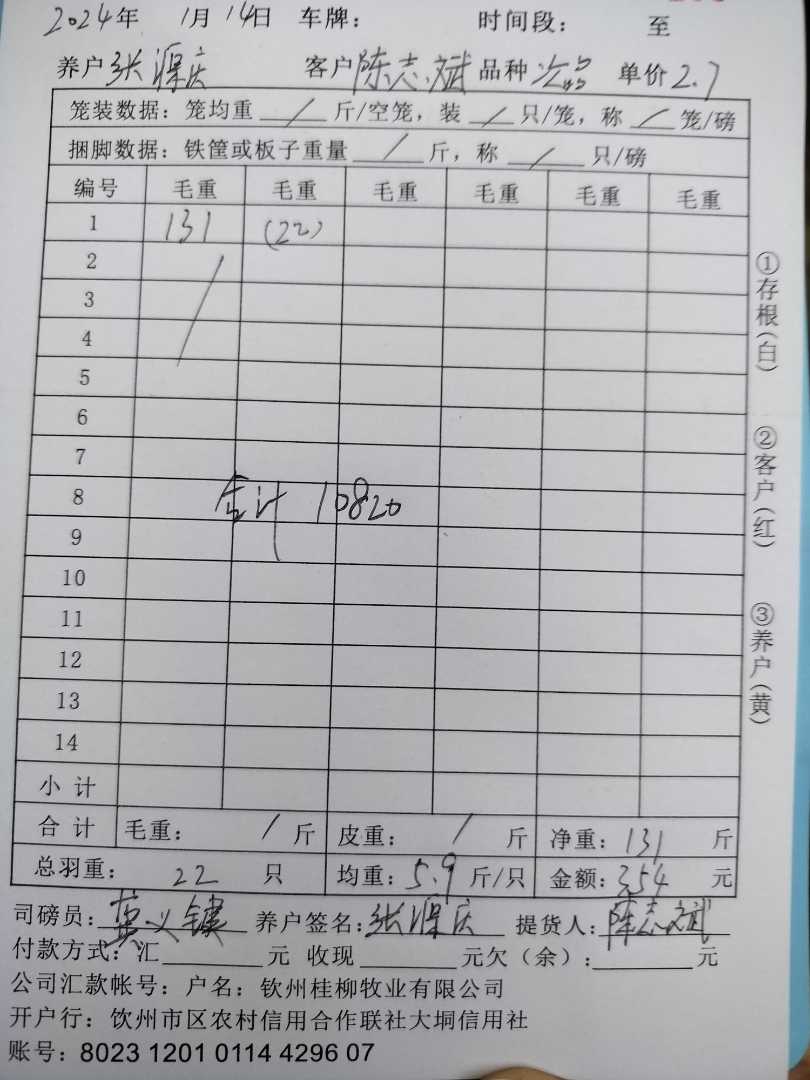 2024年 1月14日 车牌： 时间段： 至
养户 张源庆 客户 陈志斌 品种 次品 单价 2.7
笼装数据：笼均重 / 斤/空笼，装 / 只/笼，称 / 笼/磅
捆脚数据：铁筐或板子重量 / 斤，称 / 只/磅
编号 毛重 毛重 毛重 毛重 毛重 毛重
1 131 (22)
2
3
4
5
6
7
8 合计 10820
9
10
11
12
13
14
小计
合计 毛重： / 斤 皮重： / 斤 净重：131 斤
总羽重： 22 只 均重：5.9 斤/只 金额：354 元
司磅员： 养户签名：张源庆 提货人：陈志斌
付款方式：汇 元 收现 元欠（余）： 元
公司汇款帐号：户名：钦州桂柳牧业有限公司
开户行：钦州市区农村信用合作联社大垌信用社
账号：8023 1201 0114 4296 07
①存根(白)
②客户(红)
③养户(黄)